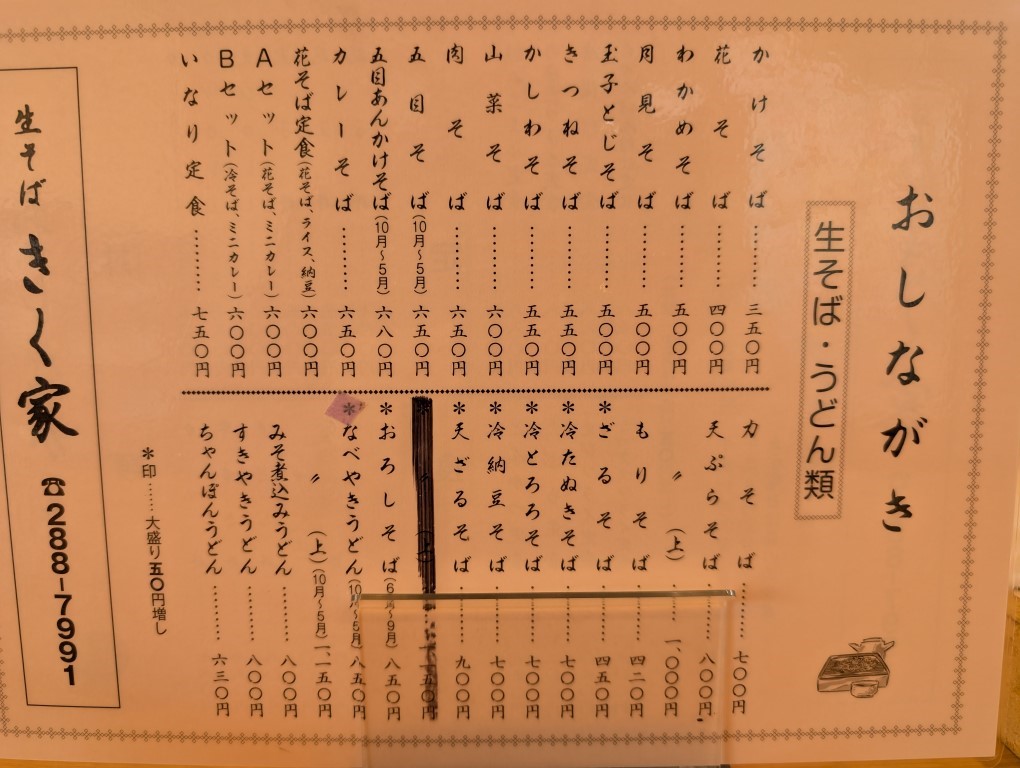 おしながき
生そば・うどん類
かけそば………三五〇円
花そば………四〇〇円
わかめそば………五〇〇円
月見そば………五〇〇円
玉子とじそば………五〇〇円
きつねそば………五五〇円
かしわそば………五五〇円
山菜そば………六〇〇円
肉そば………六五〇円
五目そば(10月〜5月)六五〇円
五目あんかけそば(10月〜5月)六八〇円
カレーそば………六五〇円
花そば定食(花そば、ライス、納豆)六〇〇円
Aセット(花そば、ミニカレー)六〇〇円
Bセット(冷そば、ミニカレー)六〇〇円
いなり定食………七五〇円
力そば………七〇〇円
天ぷらそば………八〇〇円
〃(上)………一、〇〇〇円
もりそば………四二〇円
*ざるそば………四五〇円
*冷たぬきそば………七〇〇円
*冷とろろそば………七〇〇円
*冷納豆そば………七〇〇円
*天ざるそば………九〇〇円
*おろしそば(6月〜9月)八五〇円
*なべやきうどん(10月〜5月)八五〇円
〃(上)(10月〜5月)一、一五〇円
みそ煮込みうどん………八〇〇円
すきやきうどん………八〇〇円
ちゃんぽんうどん………六三〇円
*印……大盛り五〇円増し
生そば きく家 ☎288-7991